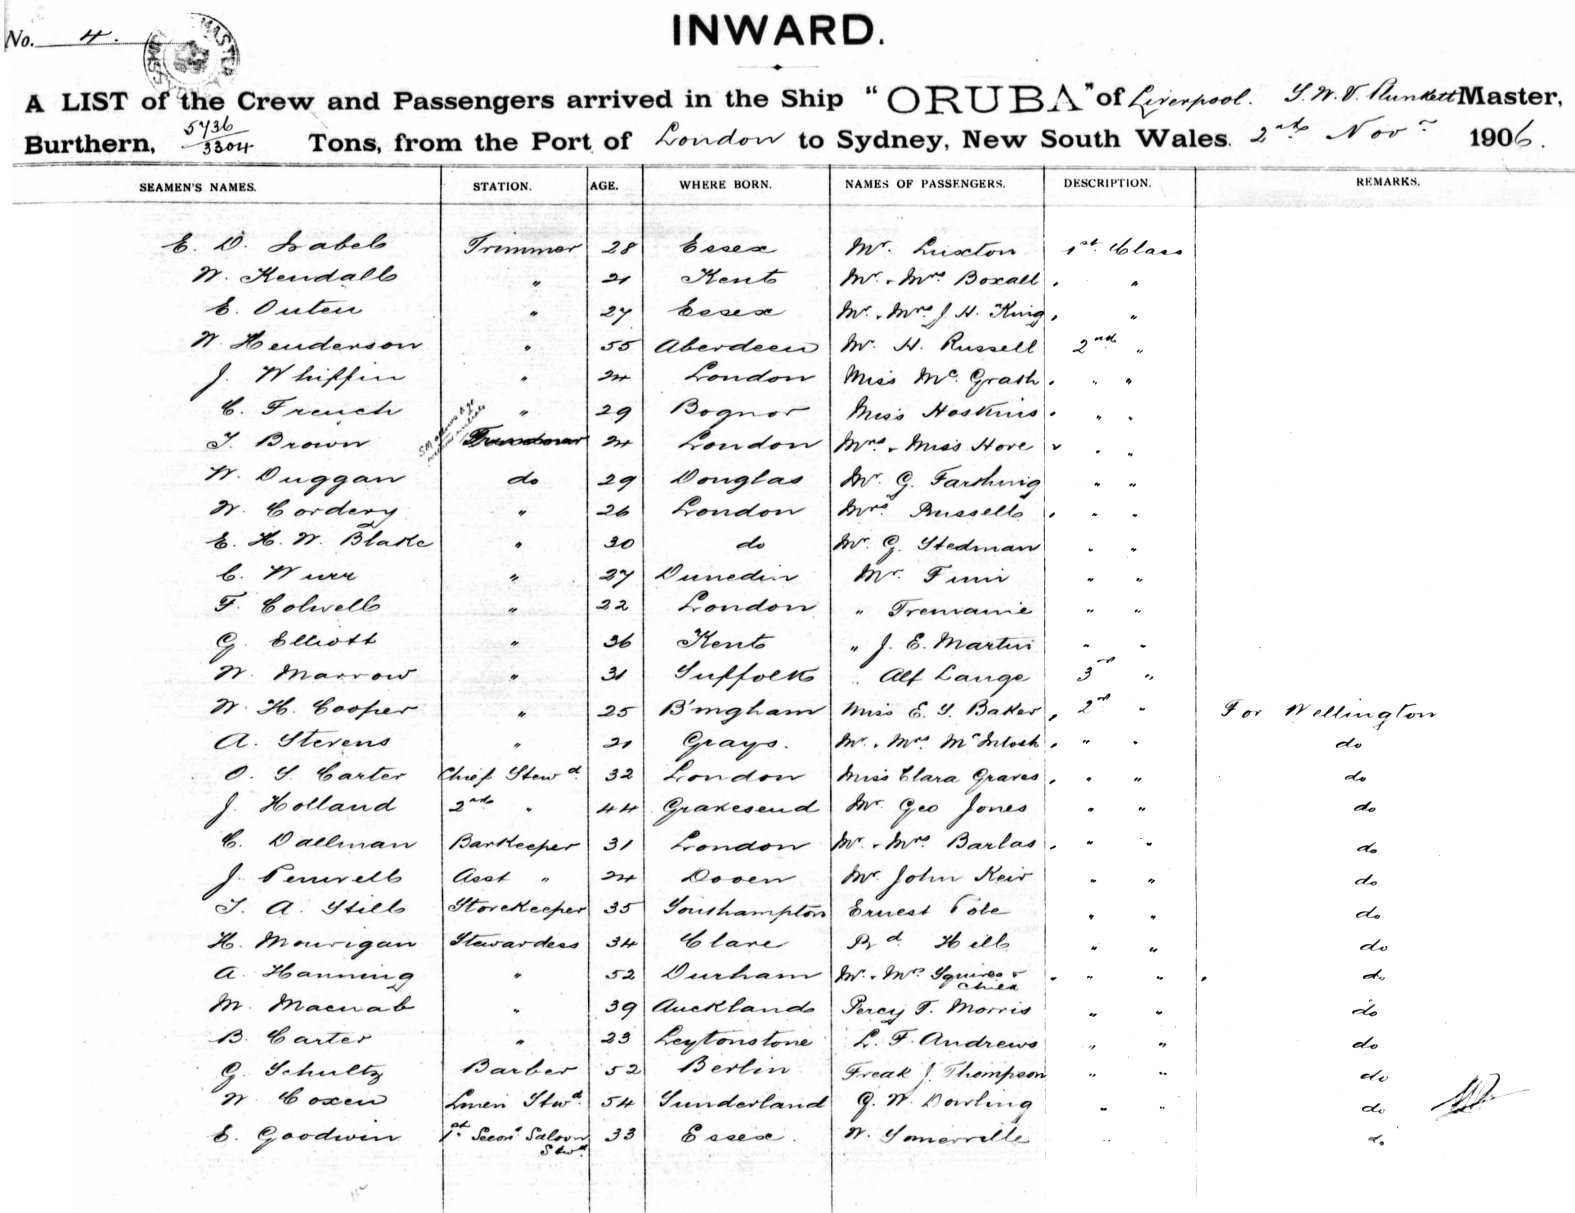 No. 4.
INWARD.
A LIST of the Crew and Passengers arrived in the Ship "ORUBA" of Liverpool. Plunkett Master,
Burthern, 5736 / 3304 Tons, from the Port of London to Sydney, New South Wales. 2nd Novr 1906.
SEAMEN'S NAMES. STATION. AGE. WHERE BORN. NAMES OF PASSENGERS. DESCRIPTION. REMARKS.
E. D. Isabel Trimmer 28 Essex Mr. Luxton 1st Class
W. Kendall " 21 Kent Mr. & Mrs Boxall "
E. Outen " 27 Essex Mr. & Mrs J H. King "
W. Henderson " 55 Aberdeen Mr. H. Russell 2nd "
J. Whiffin " 24 London Miss Mc. Grath " "
C. French " 29 Bognor Miss Hoskins " "
T. Brown 24 London Mrs & Miss Hore " "
W. Duggan do 29 Douglas Mr. G. Farthing " "
W. Cordery " 26 London Mrs Russell " "
E. H. W. Blake " 30 do Mr. G. Stedman " "
C. Wurr " 27 Dunedin Mr. Finn " "
F. Colwell " 22 London " Tremaine " "
G. Elliott " 36 Kent " J. E. Martin " "
W. Marrow " 31 Suffolk " Alf Lange 3rd "
W. H. Cooper " 25 B'mgham Miss E. S. Baker 2nd " For Wellington
A. Stevens " 21 Grays. Mr. & Mrs McIntosh " " do
O. S. Carter Chief Stewd 32 London Miss Clara Graves " " do
J. Holland 2nd " 44 Gravesend Mr Geo Jones " " do
C. Dallman Barkeeper 31 London Mr. & Mrs Barlas " " do
J. Penwell Asst " 24 Dover Mr. John Keir " " do
T. A. Still Storekeeper 35 Southampton Ernest Pole " " do
H. Mourigan Stewardess 34 Clare Rd Hill " " do
A. Hanning " 52 Durham Mr. & Mrs Squires & Child " " do
M. Macnab " 39 Auckland Percy F. Morris " " do
B. Carter " 23 Leytonstone L. F. Andrews " " do
G. Schultz Barber 52 Berlin Freak J. Thompson " " do
W. Coxen Linen Stwd 54 Sunderland G. W. Dowling " " do
E. Goodwin 1st Saloon Stwd 33 Essex. W. Somerville " do